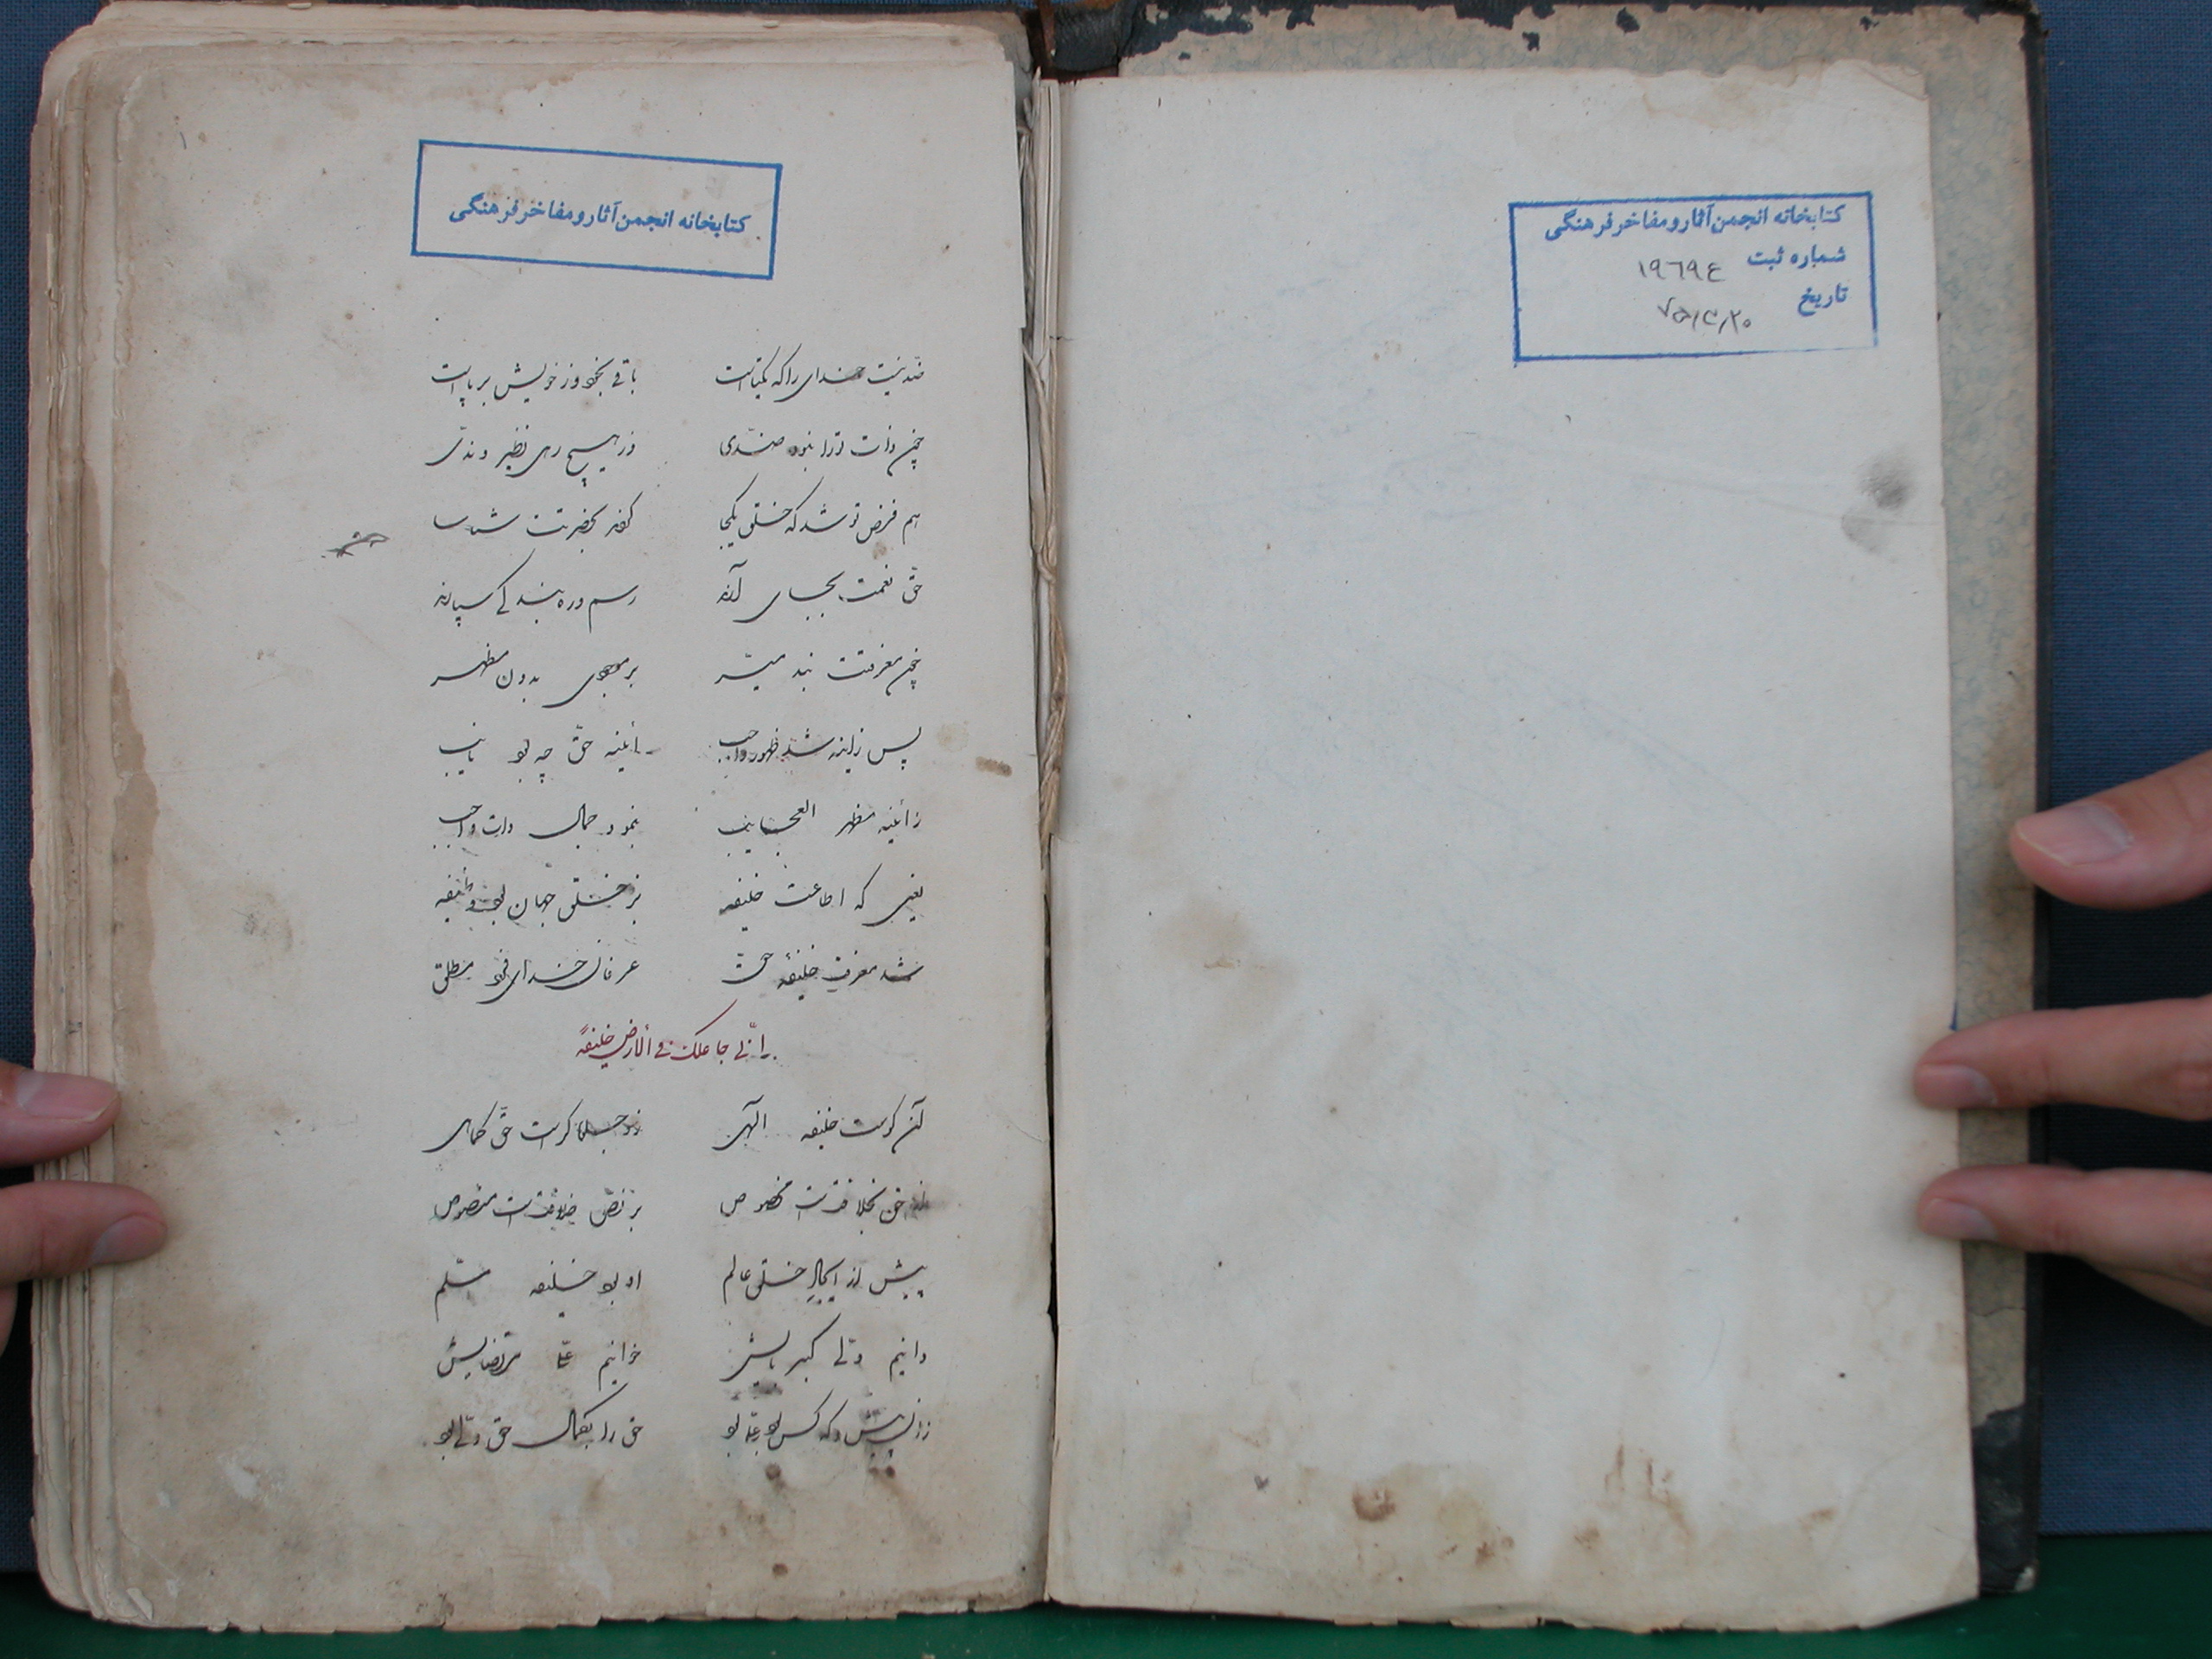 کتابخانه انجمن آثار و مفاخر فرهنگی
شماره ثبت ۱۹٦۹٤
تاریخ
۱
کتابخانه انجمن آثار و مفاخر فرهنگی
ضد نیست خدای را که یکتاست باقی بخود و ز خویش برپاست
چون ذات ترا نبود ضدی وز هیچ رهی نظیر و ندی
هم فرض تو شد که خلق یکجا بحضرتت شناسا
حق نعمتت بجای آرند رسم و ره بندگی سپارند
چون معرفتت نبد میسر بر موجودی بدون مظهر
پس زاینه شد ظهور واجب آئینه حق چه بود نایب
زآئینه مظهر العجایب بنمود جمال ذات واجب
یعنی که اطاعت خلیفه بر خلق جهان بود وظیفه
شد معرفت خلیفهٔ حق عرفان خدای فرد مطلق
انی جاعلک فی الارض خلیفةً
آن کوست خلیفه الهی حق کماهی
حق بخلافتست مخصوص بر نص خلافتست منصوص
پیش از ایجاد خلق عالم او بود خلیفه مسلم
دانیم ولی کبریایش خوانیم علی مرتضایش
زان پیش که کس بود علی بود حق را بکمال حق ولی بود